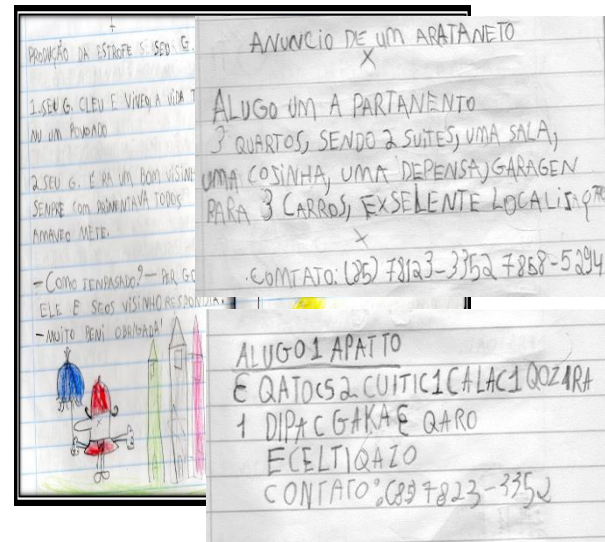 PRODUÇÃO DA ESTROFE 5 SEU G.
1. SEU G. CLEU E VIVEO A VIDA T
NU UM POVOADO
2 SEU G. ÉRA UM BOM VISINH
SEMPRE COM TODOS
AMAVEO METE.
- COMO TENPASADO? - PER GO
ELE E SEOS VISINHO RESPONDIA.
- MUITO BENI OBRIGADA!
ANUNCIO DE UM ARATANETO
X
ALUGO UM A PARTANENTO
3 QUARTOS, SENDO 2 SUITES, UMA SALA,
UMA COSINHA, UMA DEPENSA, GARAGEN
PARA 3 CARROS, EXSELENTE
X
COMTATO: (85) 78123-3352 7868-5294
ALUGO 1 APATTO
E QATOCS 2 CUITIC 1 CALAC 1 QOZARA
1 DIPAC GAKAE QARO
ECELTIQAZO
CONTATO: (85) 7823-3352